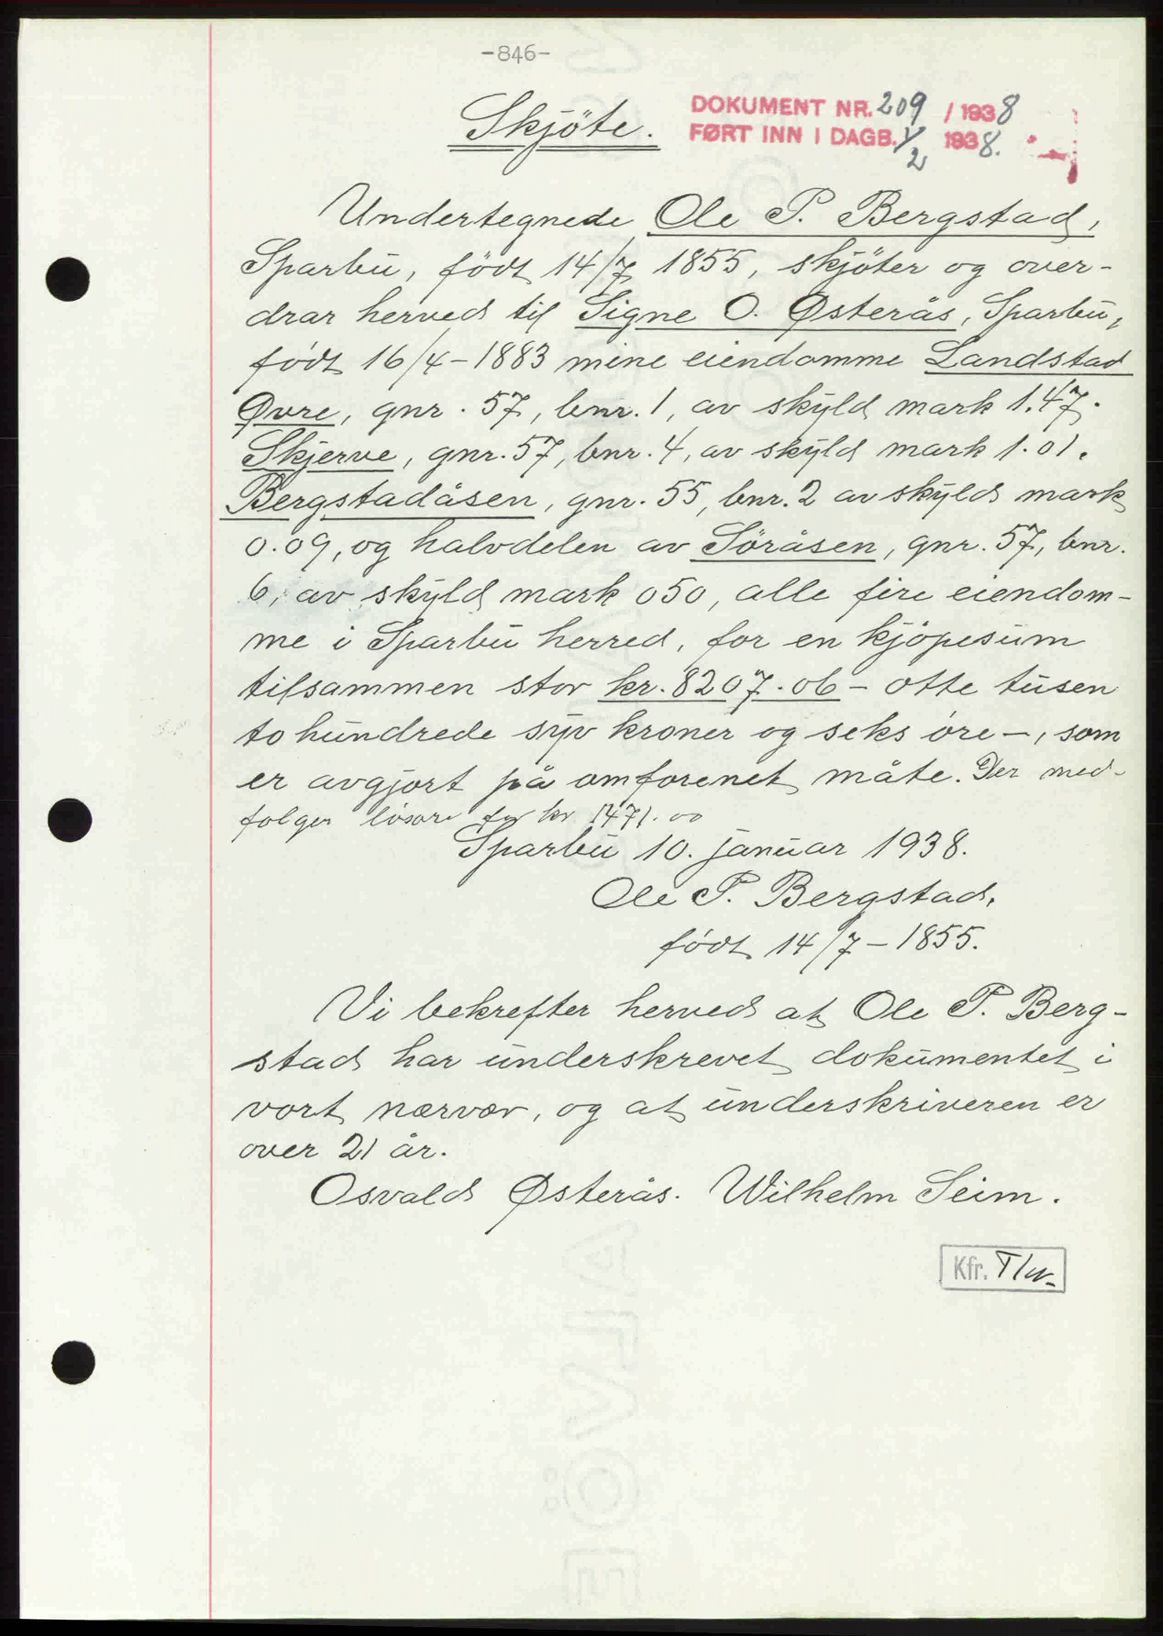 -846-
Skjöte.
DOKUMENT NR. 209 / 1938
FØRT INN I DAGB. 1/2 1938.
Undertegnede Ole P. Bergstad,
Sparbu, födt 14/7 1855, skjöter og over-
drar herved til Signe O. Østerås, Sparbu,
födt 16/4-1883 mine eiendomme Landstad
Øvre, gnr. 57, bnr. 1, av skyld mark 1.47.
Skjerve, gnr. 57, bnr. 4, av skyld mark 1.01.
Bergstadåsen, gnr. 55, bnr. 2 av skyld mark
0.09, og halvdelen av Söråsen, gnr. 57, bnr.
6, av skyld mark 050, alle fire eiendom-
me i Sparbu herred, for en kjöpesum
tilsammen stor kr. 8207.06 - otte tusen
to hundrede syv kroner og seks öre -, som
er avgjort på omforenet måte. Der med-
følger lösöre for kr 1471.00
Sparbu 10. januar 1938.
Ole P. Bergstad,
födt 14/7-1855.
Vi bekrefter herved at Ole P. Berg-
stad har underskrevet dokumentet i
vort nærvær, og at underskriveren er
over 21 år.
Osvald Østerås. Wilhelm Seim.
Kfr.